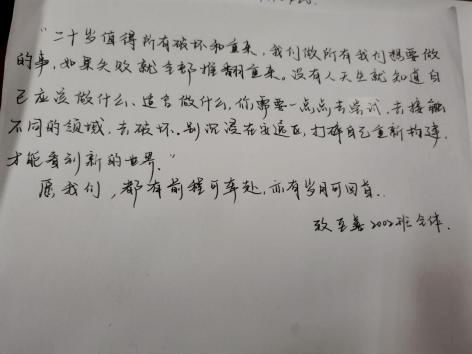 “二十岁值得所有破坏和重来，我们做所有我们想要做
的事，如果失败就全部推翻重来。没有人天生就知道自
己应该做什么、适合做什么，你需要一点点去尝试，去接触
不同的领域，去破坏。别沉浸在安逸区，打碎自己重新构建，
才能看到新的世界。”
愿我们，都有前程可奔赴，亦有岁月可回首..
致至善2002班全体.